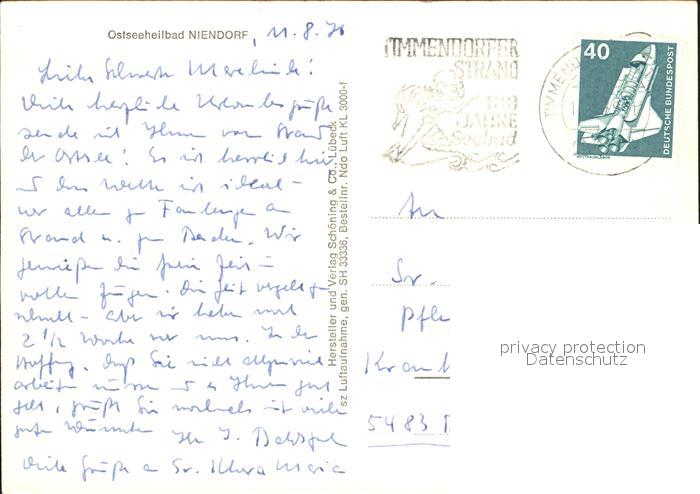 Ostseeheilbad NIENDORF, 11.8.76
Liebe Schwester
Viele herzliche Urlaubsgrüße
sende ich Ihnen vom Strand
der Ostsee! Es ist herrlich hier
und das Wetter ist ideal –
vor allem zum Faulenzen am
Strand u. zum Baden. Wir
genießen die freie Zeit in
vollen Zügen. Die Zeit vergeht zu
schnell – aber wir haben noch
2 1/2 Woche vor uns. In der
Hoffnung, daß Sie nicht allzuviel
arbeiten müssen und es Ihnen gut
geht, grüßt Sie nochmals mit vielen
guten Wünschen Ihr J.
Viele Grüße an Sr. Klara Maria
Hersteller und Verlag Schöning & Co., Lübeck
sz Luftaufnahme, gen. SH 33336, Bestellnr. Ndo Luft KL 3000-f
TIMMENDORFER
STRAND
100
JAHRE
Seebad
TIMMENDO
40
DEUTSCHE BUNDESPOST
WELTRAUMLABOR
An
Sr.
Pfle
Krank
5483
privacy protection
Datenschutz